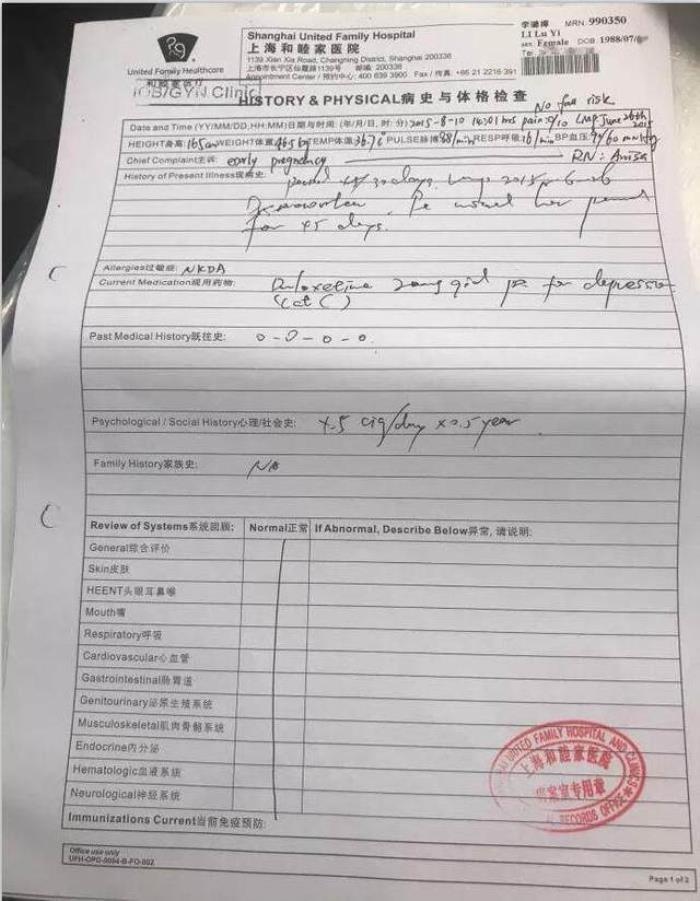 李璐 MRN: 990350
LI Lu Yi
sex: Female DOB: 1988/07/
Tel:
United Family Healthcare
和睦家医疗
OB/GYN Clinic
Shanghai United Family Hospital
上海和睦家医院
1139 Xian Xia Road, Changning District, Shanghai 200336
上海市长宁区仙霞路1139号 邮编: 200336
Appointment Center / 预约中心: 400 639 3900 Fax / 传真: +86 21 2216 391
HISTORY & PHYSICAL病史与体格检查
No fall risk
Date and Time (YY/MM/DD,HH:MM)日期与时间: (年/月/日, 时: 分) 2015-8-10 14:01 hrs pain: 0/10 LMP June 26th 2015
HEIGHT身高: 165cm WEIGHT体重: 46.5kg TEMP体温: 36.7℃ PULSE脉搏: 88/min RESP呼吸: 16/min BP血压: 94/60 mmHg
Chief Complaint主诉: early pregnancy RN: Anisa
History of Present Illness现病史:
days. 2015-6-26
period
for 45 days.
Allergies过敏症: NKDA
Current Medication现用药物: Duloxetine 20mg qid po for depression
(cat C)
Past Medical History既往史: 0-0-0-0
Psychological / Social History心理/社会史: 5 cig/day x 0.5 year
Family History家族史:
Review of Systems系统回顾: Normal正常 If Abnormal, Describe Below异常, 请说明:
General综合评价
Skin皮肤
HEENT头眼耳鼻喉
Mouth嘴
Respiratory呼吸
Cardiovascular心血管
Gastrointestinal肠胃道
Genitourinary泌尿生殖系统
Musculoskeletal肌肉骨骼系统
Endocrine内分泌
Hematologic血液系统
Neurological神经系统
Immunizations Current当前免疫预防:
UNITED FAMILY HOSPITAL AND CLINICS
上海和睦家医院
病案室专用章
RECORDS OFFICE
Office use only
UFH-OPD-0004-B-FO-002
Page 1 of 2